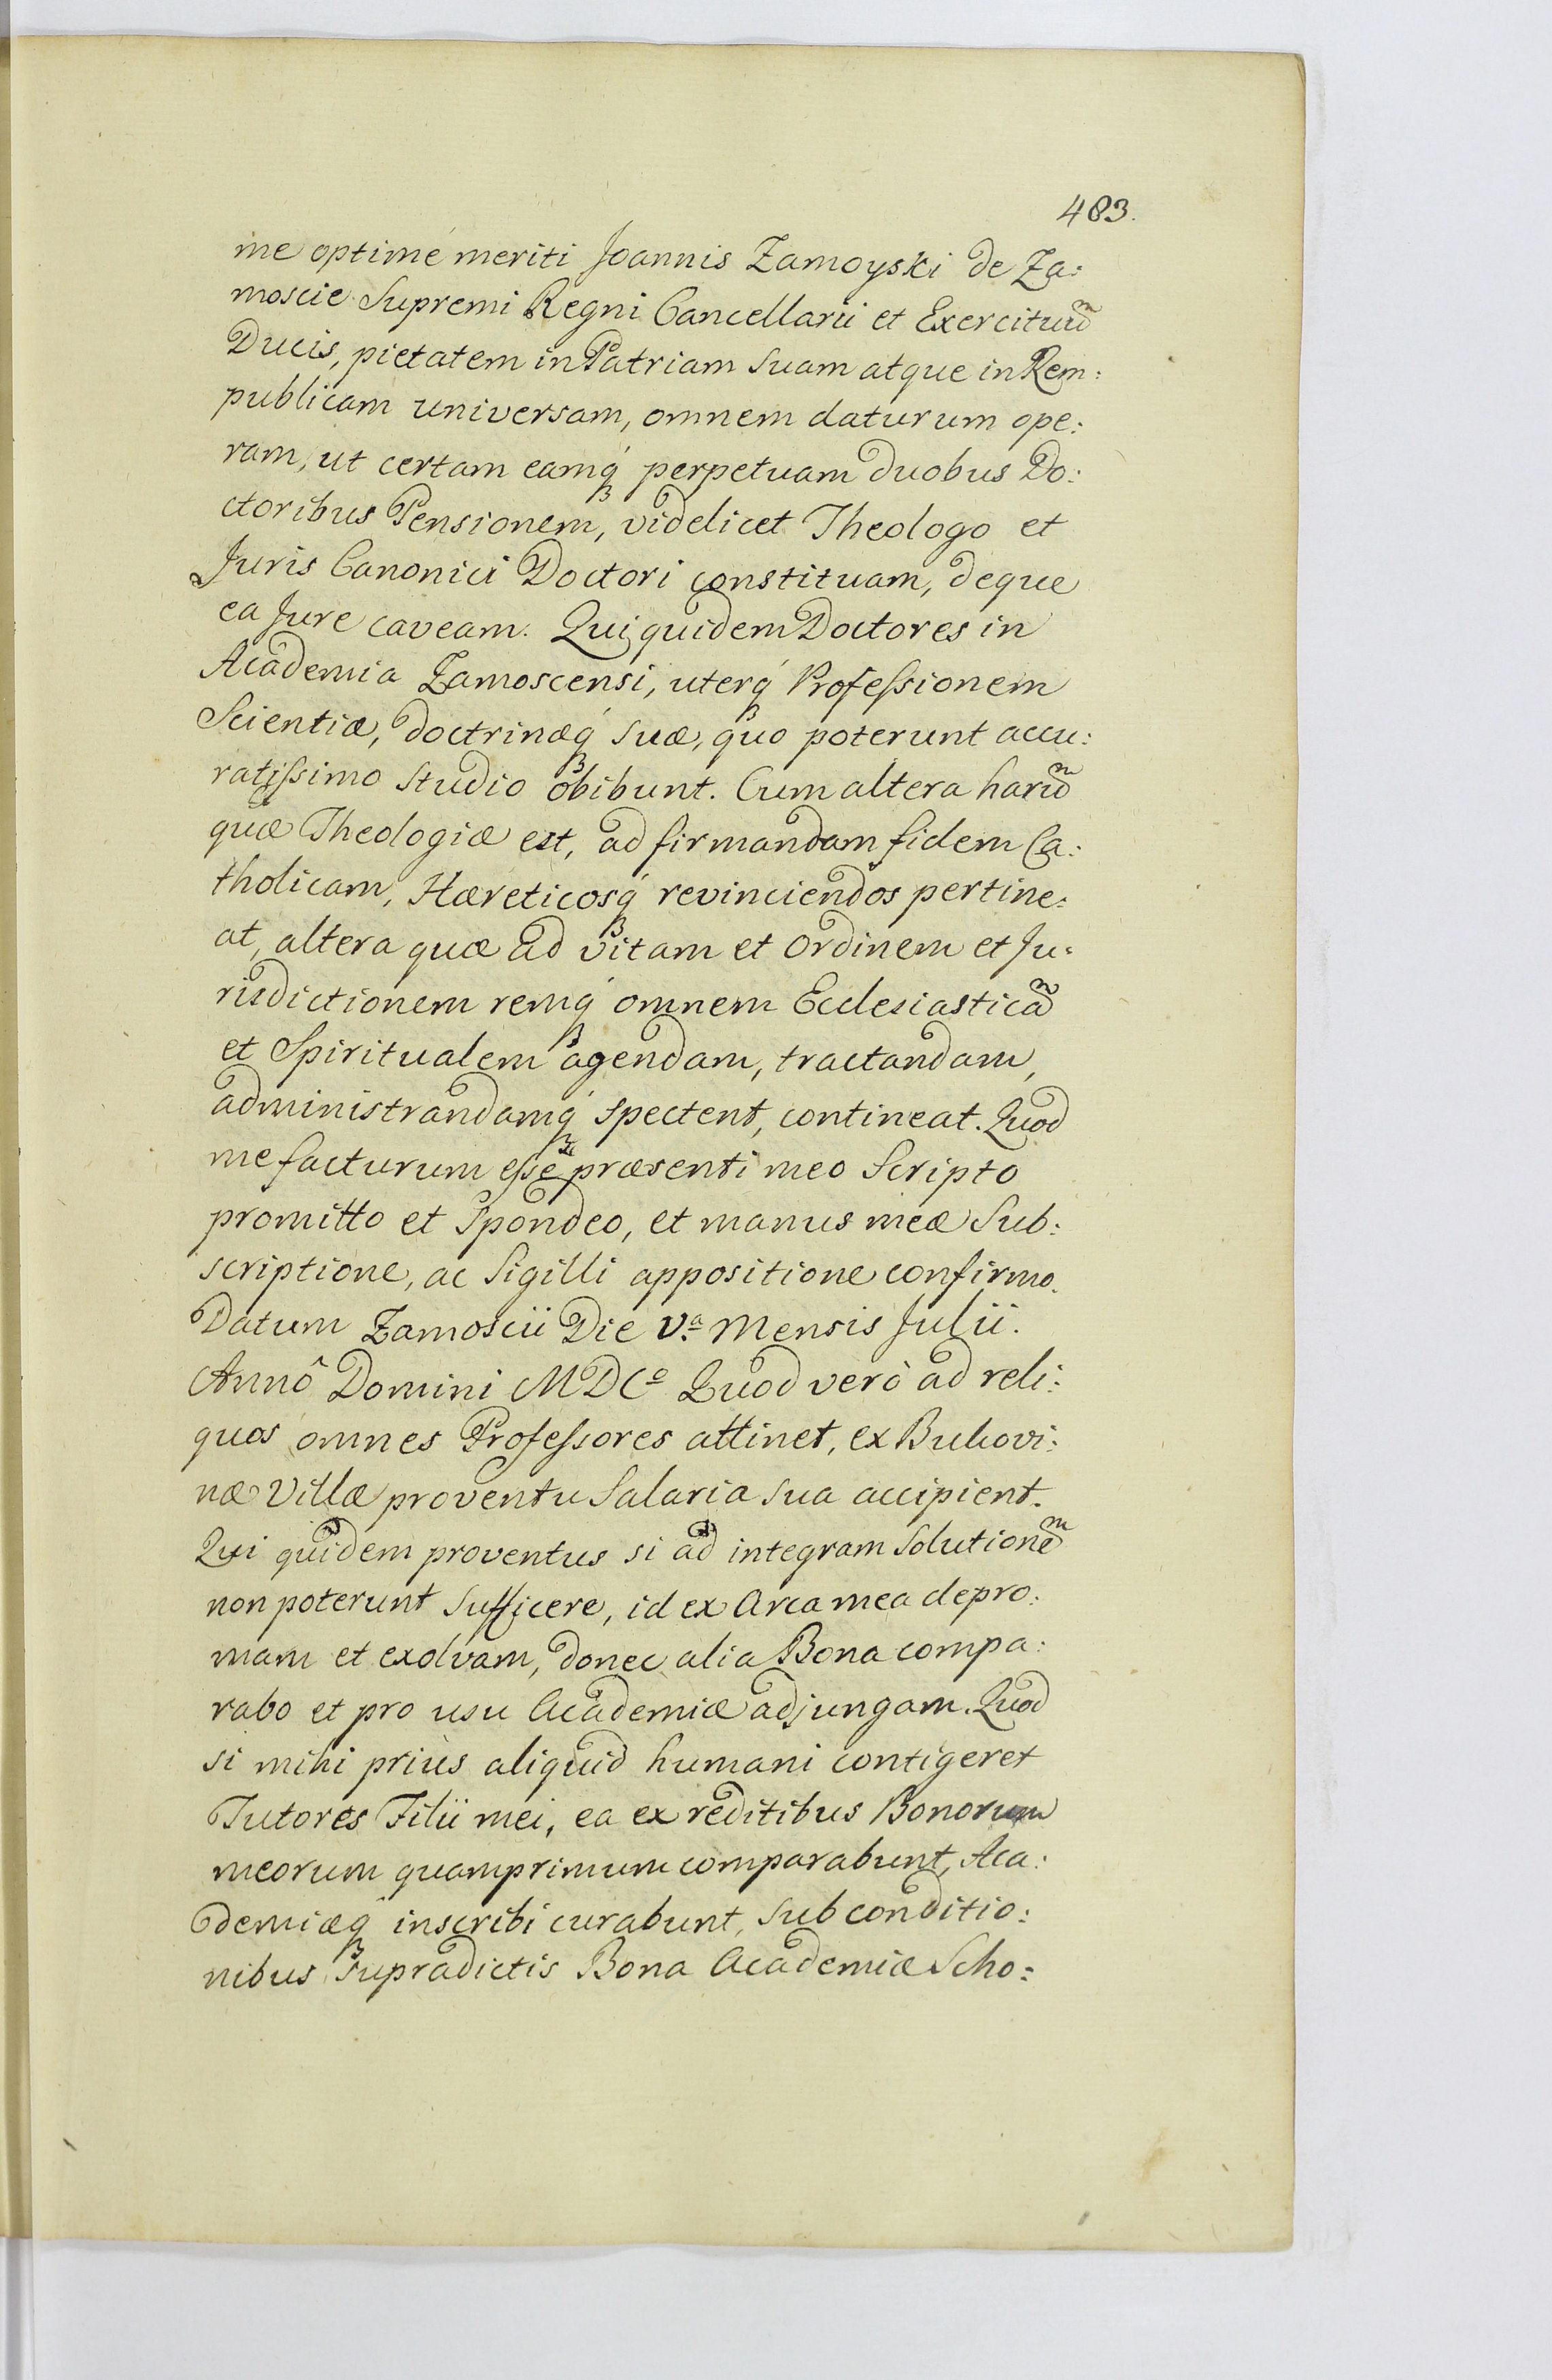 483.
me optimé meriti Joannis Zamoyski de Za:
moscie Supremi Regni Cancellarii et Exercituũ
Ducis, pietatem in Patriam Suam atque in Rem:
publicam universam, omnem daturum ope:
ram, ut certam eamq́ꝫ perpetuam duobus Do:
ctoribus Pensionem, videlicet Theologo et
Juris Canonici Doctori constituam, deque
ea Jure caveam. Qui quidem Doctores in
Academia Zamoscensi, uterq́ꝫ Profeſsionem
Scientiæ, doctrinæq́ꝫ suæ, quo poterunt accu:
ratiſsimo Studio obibunt. Cum altera harũ
quæ Theologiæ est, ad firmandam fidem Ca:
tholicam, Hæreticosq́ꝫ revinciendos pertine:
at, altera quæ ad vitam et Ordinem et Ju:
risdictionem remq́ꝫ omnem Ecclesiasticã
et Spiritualem agendam, tractandam,
administrandamq́ꝫ spectent, contineat. Quod
me facturum eſse præsenti meo Scripto
promitto et Spondeo, et manus meæ Sub:
scriptione, ac Sigilli appositione confirmo.
Datum Zamoscii Die V.ª Mensis Julii.
Annô Domini MDCº Quod verò ad reli:
quos omnes Profeſsores attinet, ex Bukovi:
næ Villæ proventu Salaria sua accipient.
Qui quidem proventus si ad integram Solutionẽ
non poterunt Sufficere, id ex Arca mea depro:
mam et exolvam, donec alia Bona compa:
rabo et pro usu Academiæ adjungam. Quod
si mihi priùs aliquid humani contigeret
Tutores Filii mei, ea ex reditibus Bonorum
meorum quamprimum comparabunt, Aca:
demiæq́ꝫ inscribi curabunt, Sub conditio:
nibus Supradictis Bona Academiæ Scho: